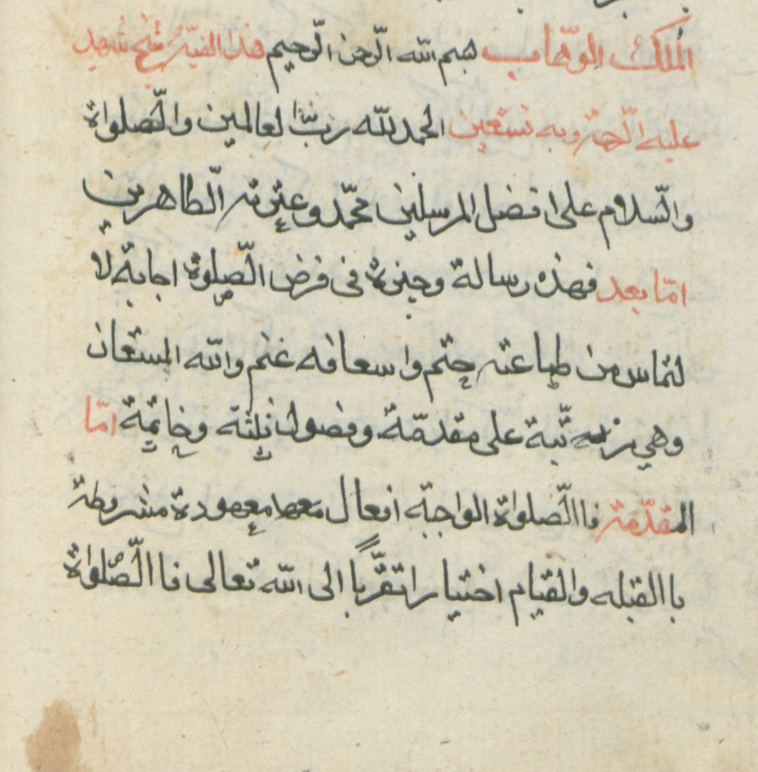 الملك الوهاب بسم الله الرحمن الرحيم هذا الفيّة شيخ شهيد
عليه الرحمة وبه نستعين الحمد لله ربّ العالمين والصّلواة
والسّلام على افضل المرسلين محمّد وعترته الطاهرين
امّا بعد فهذه رسالة وجيزة فى فرض الصّلوة اجابة لا
لتماس من طاعته حتم واسعافه غنم والله المستعان
وهي مرتبة على مقدمّة وفصول ثلثة وخاتمة امّا
المقدّمة فاالصّلواة الواجبة افعال معهودة مشروطة
باالقبله والقيام اختيارا تقرّباً الى الله تعالى فاالصّلواة